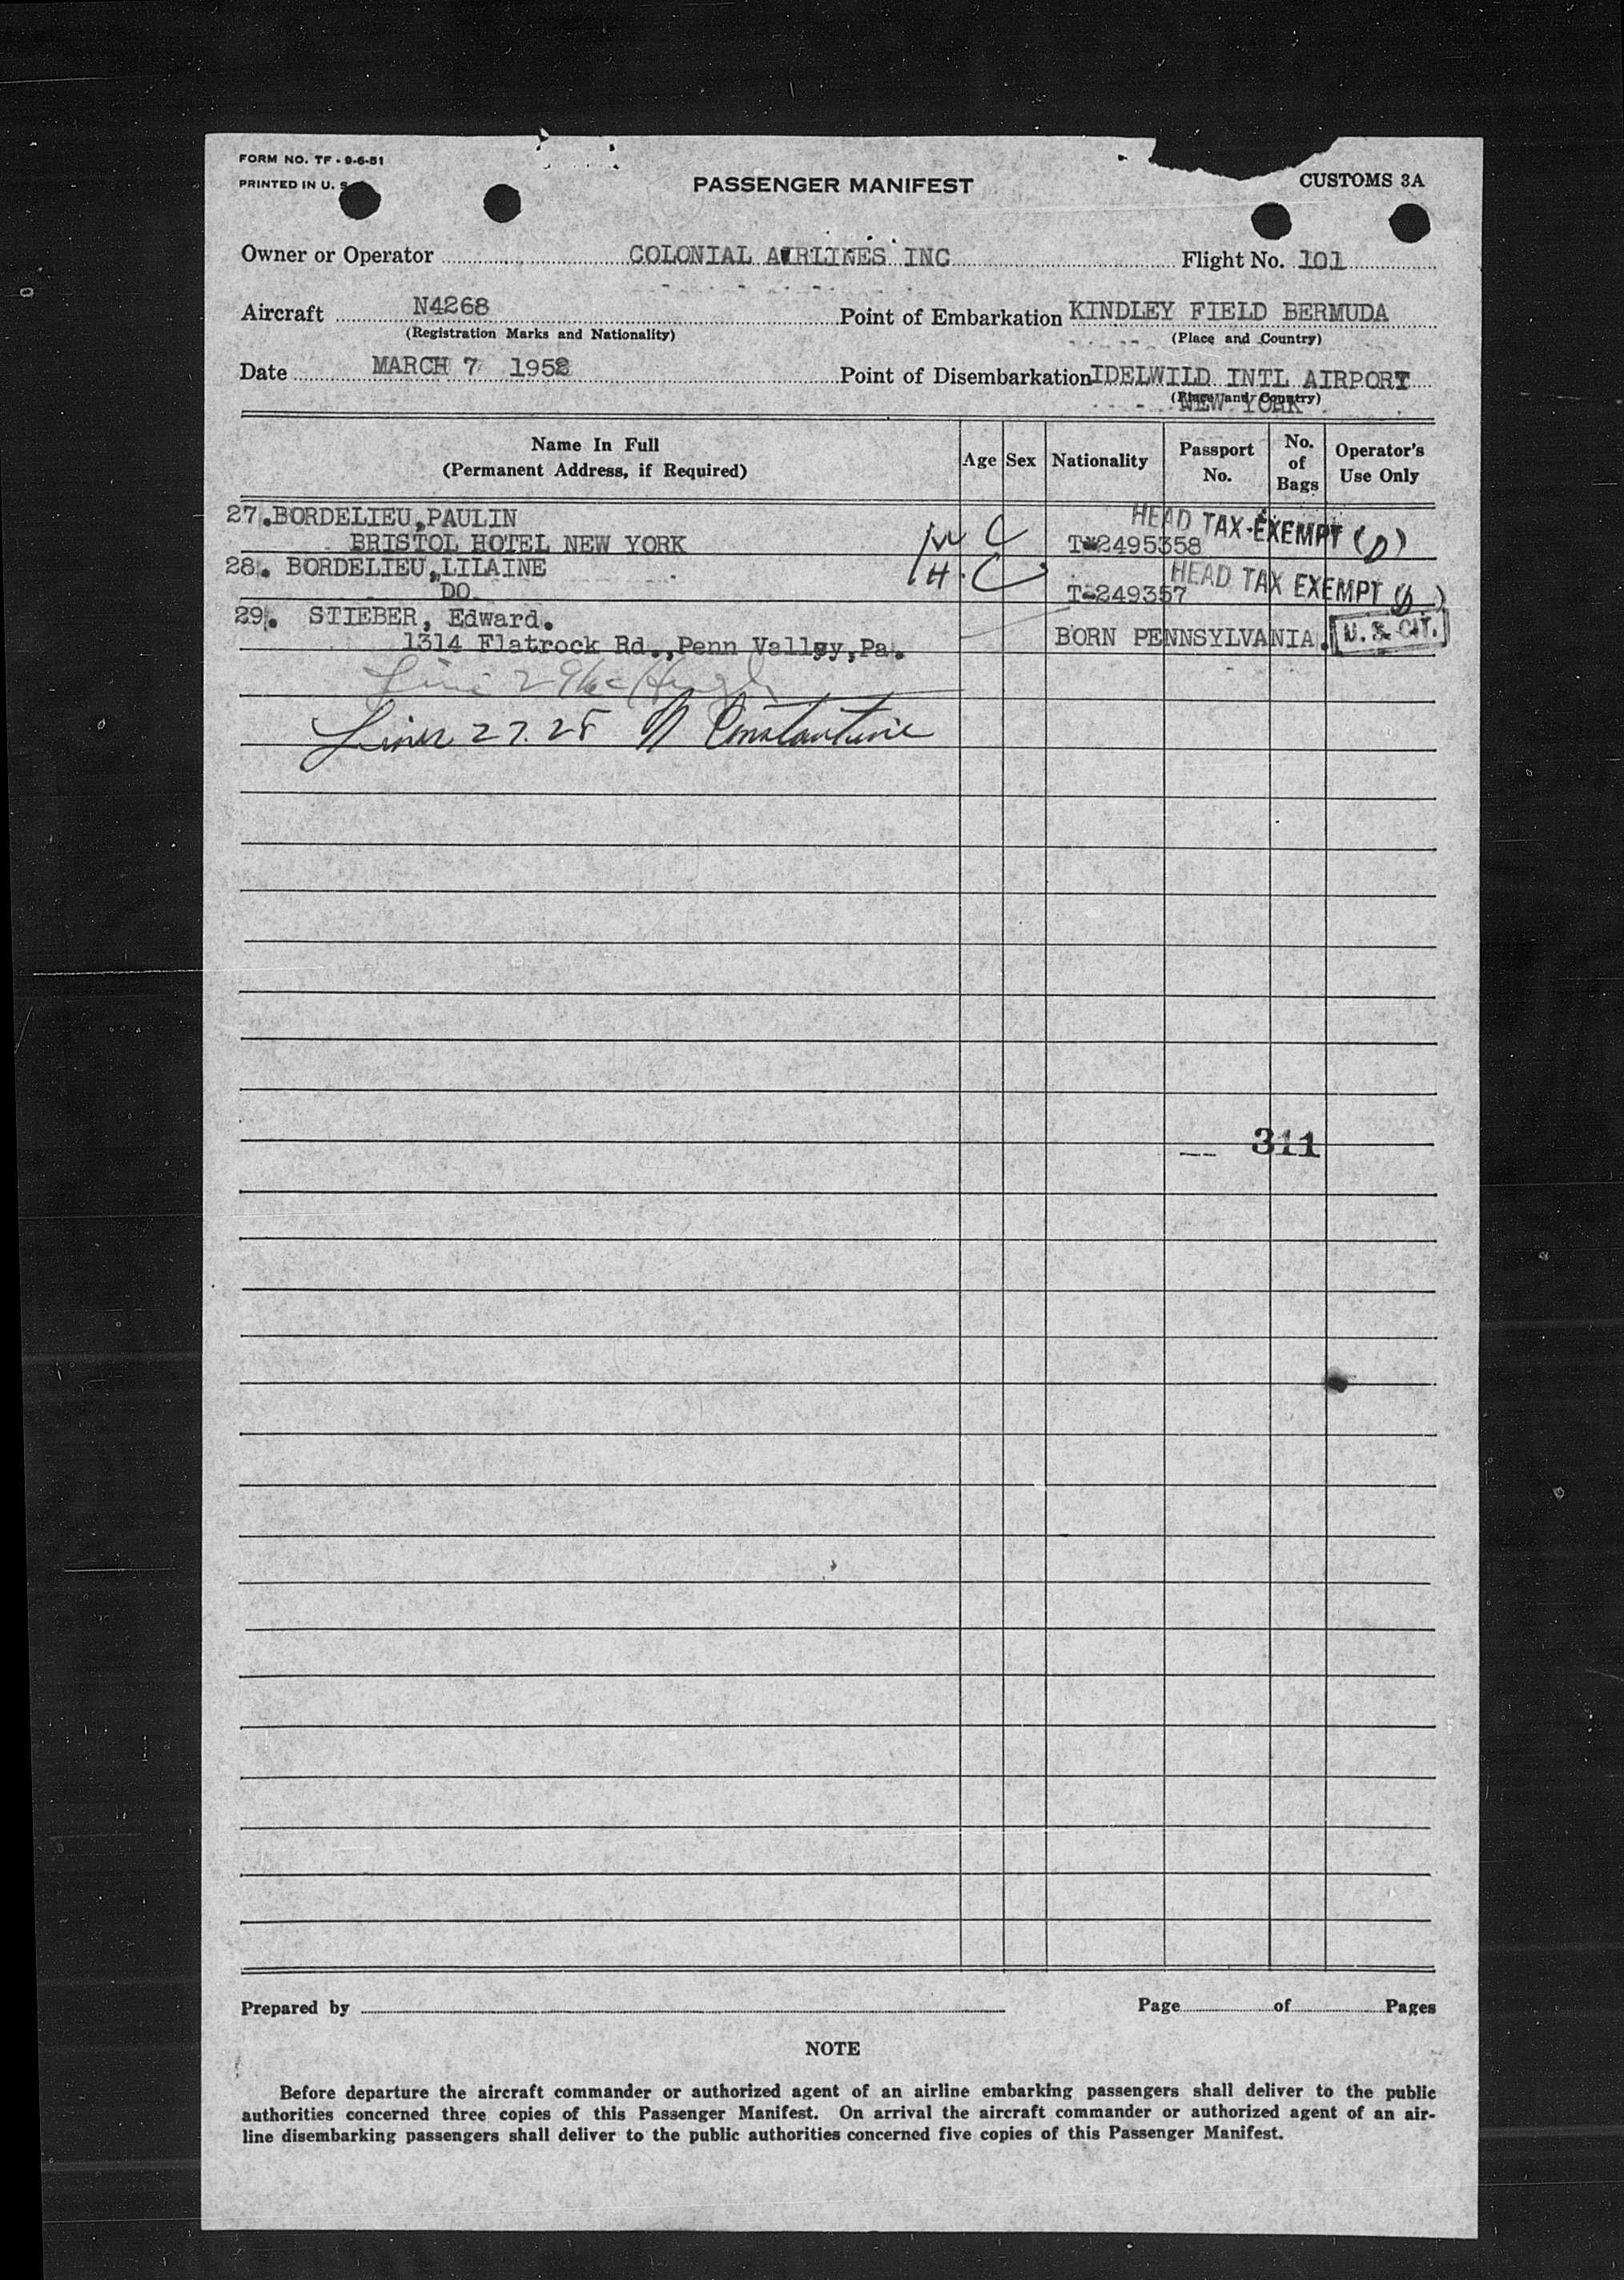 FORM NO. TF - 9-6-51
PRINTED IN U. S.
PASSENGER MANIFEST
CUSTOMS 3A
Owner or Operator COLONIAL AIRLINES INC Flight No. 101
Aircraft N4268 Point of Embarkation KINDLEY FIELD BERMUDA
(Registration Marks and Nationality) (Place and Country)
Date MARCH 7 1952 Point of Disembarkation IDELWILD INTL AIRPORT
(Place and Country)
NEW YORK
Name In Full
(Permanent Address, if Required)
Age Sex Nationality Passport No. No. of Bags Operator's Use Only
27.BORDELIEU,PAULIN HEAD TAX EXEMPT (D)
BRISTOL HOTEL NEW YORK C T-2495358
28. BORDELIEU,LILAINE C HEAD TAX EXEMPT (D)
DO T-249357
29. STIEBER, Edward.
1314 Flatrock Rd.,Penn Valley,Pa. BORN PENNSYLVANIA. U. S. CIT.
Line 29
Lines 27.28 N Constantine
311
Prepared by Page of Pages
NOTE
Before departure the aircraft commander or authorized agent of an airline embarking passengers shall deliver to the public
authorities concerned three copies of this Passenger Manifest. On arrival the aircraft commander or authorized agent of an air-
line disembarking passengers shall deliver to the public authorities concerned five copies of this Passenger Manifest.